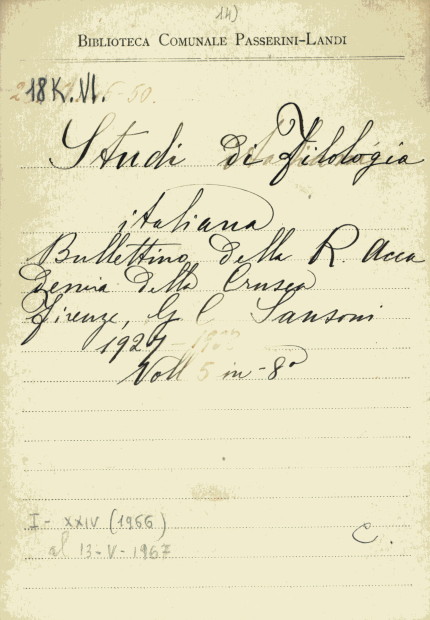 14)
BIBLIOTECA COMUNALE PASSERINI-LANDI
18K.VI.
Studi di Filologia
italiana
Bullettino della R. Acca
demia della Crusca
Firenze, G C Sansoni
1927
Voll 5 in-8°
I- XXIV (1966)
al 13-V-1967
C.